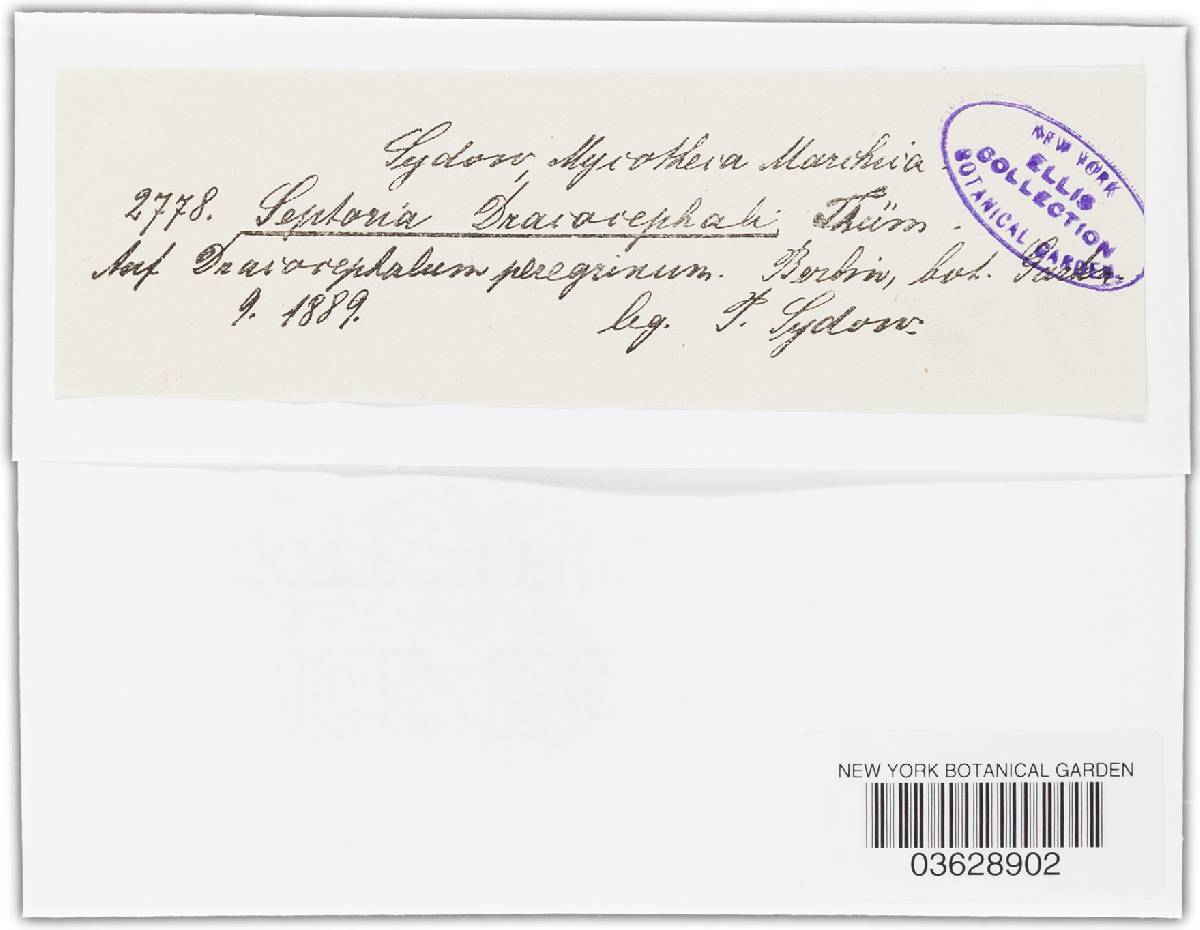 Sydow, Mycotheca Marchica.
2778. Septoria Dracocephali Thüm.
Auf Dracocephalum peregrinum. Berlin, bot. Garten.
9. 1889. leg. P. Sydow.
NEW YORK
ELLIS
COLLECTION
BOTANICAL GARDEN
NEW YORK BOTANICAL GARDEN
03628902